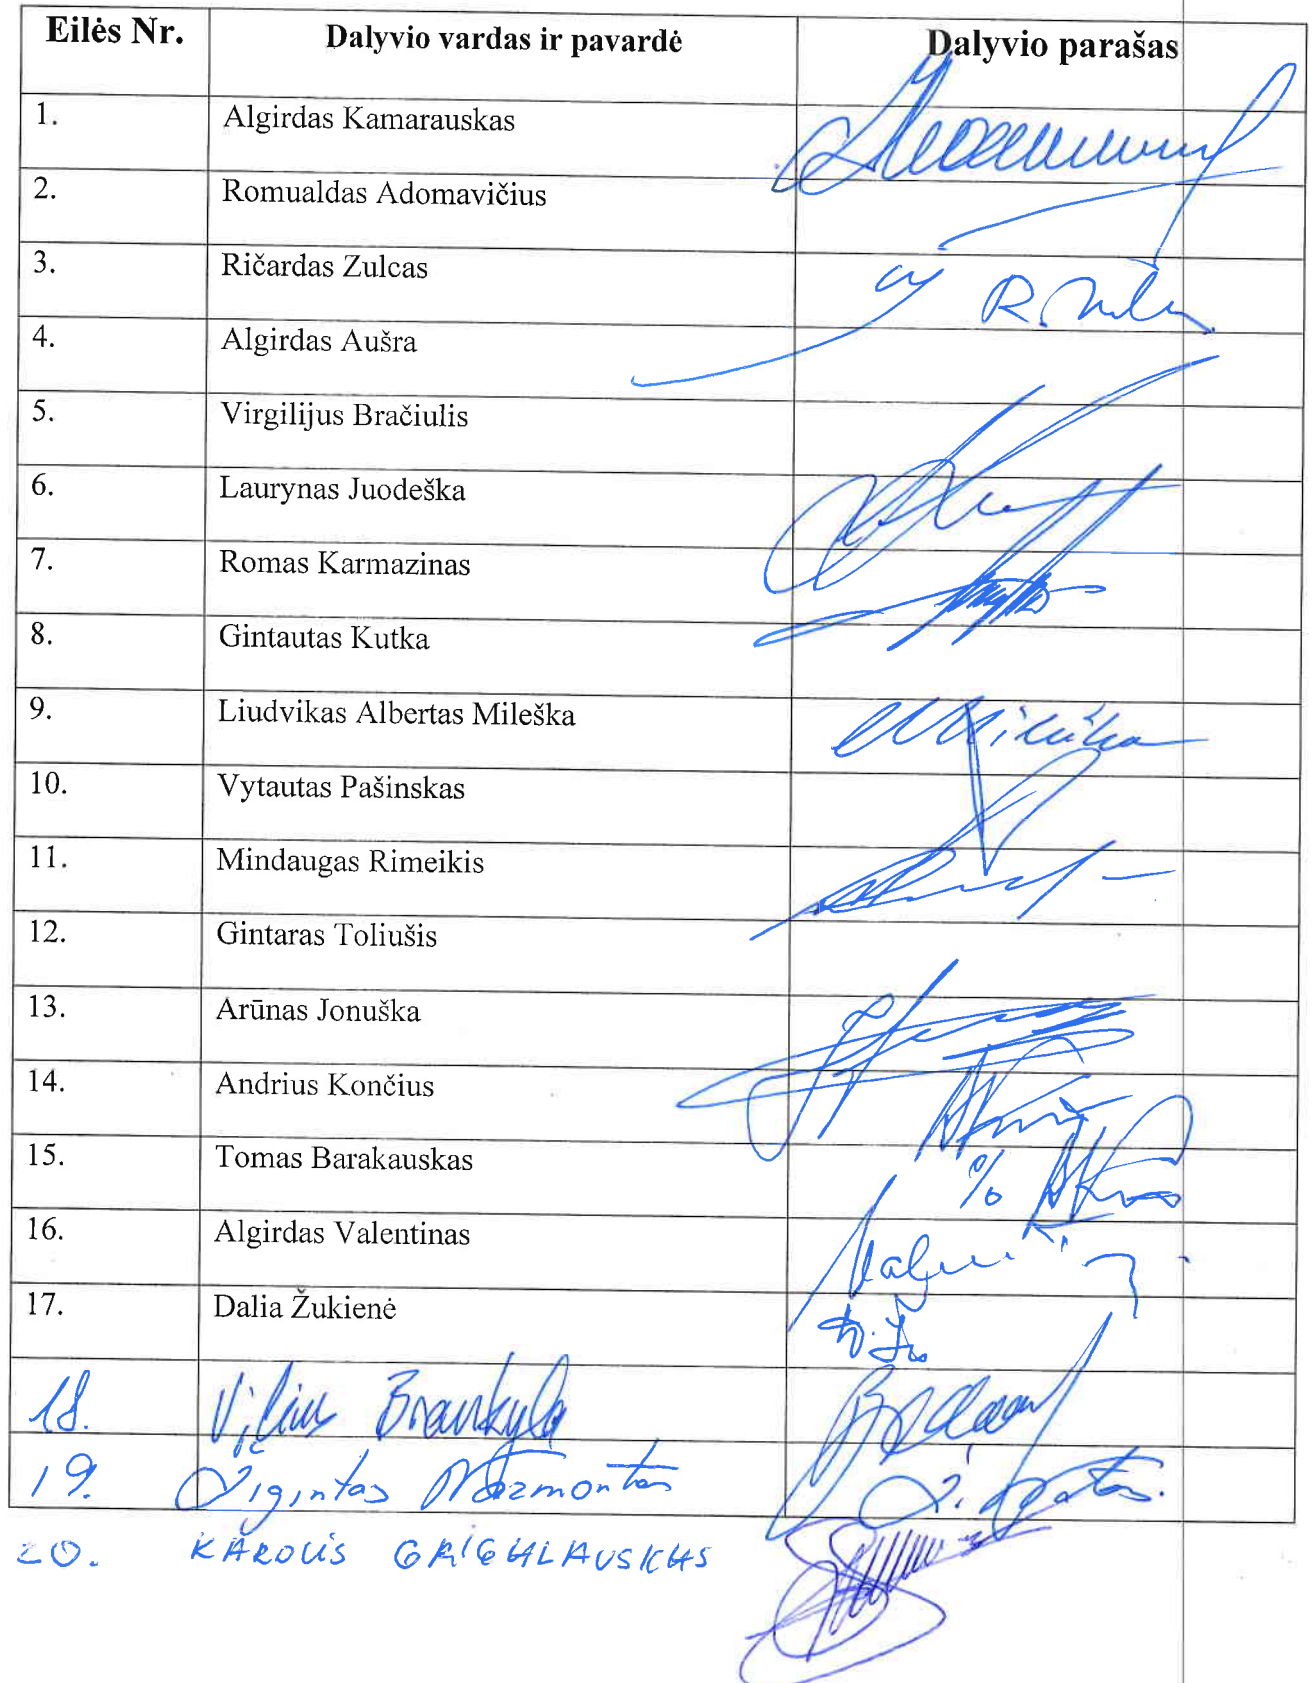 Eilės Nr. Dalyvio vardas ir pavardė Dalyvio parašas
1. Algirdas Kamarauskas
2. Romualdas Adomavičius
3. Ričardas Zulcas
4. Algirdas Aušra
5. Virgilijus Bračiulis
6. Laurynas Juodeška
7. Romas Karmazinas
8. Gintautas Kutka
9. Liudvikas Albertas Mileška
10. Vytautas Pašinskas
11. Mindaugas Rimeikis
12. Gintaras Toliušis
13. Arūnas Jonuška
14. Andrius Končius
15. Tomas Barakauskas
16. Algirdas Valentinas
17. Dalia Žukienė
18. Vilius
19. Žigintas
20. KAROLIS